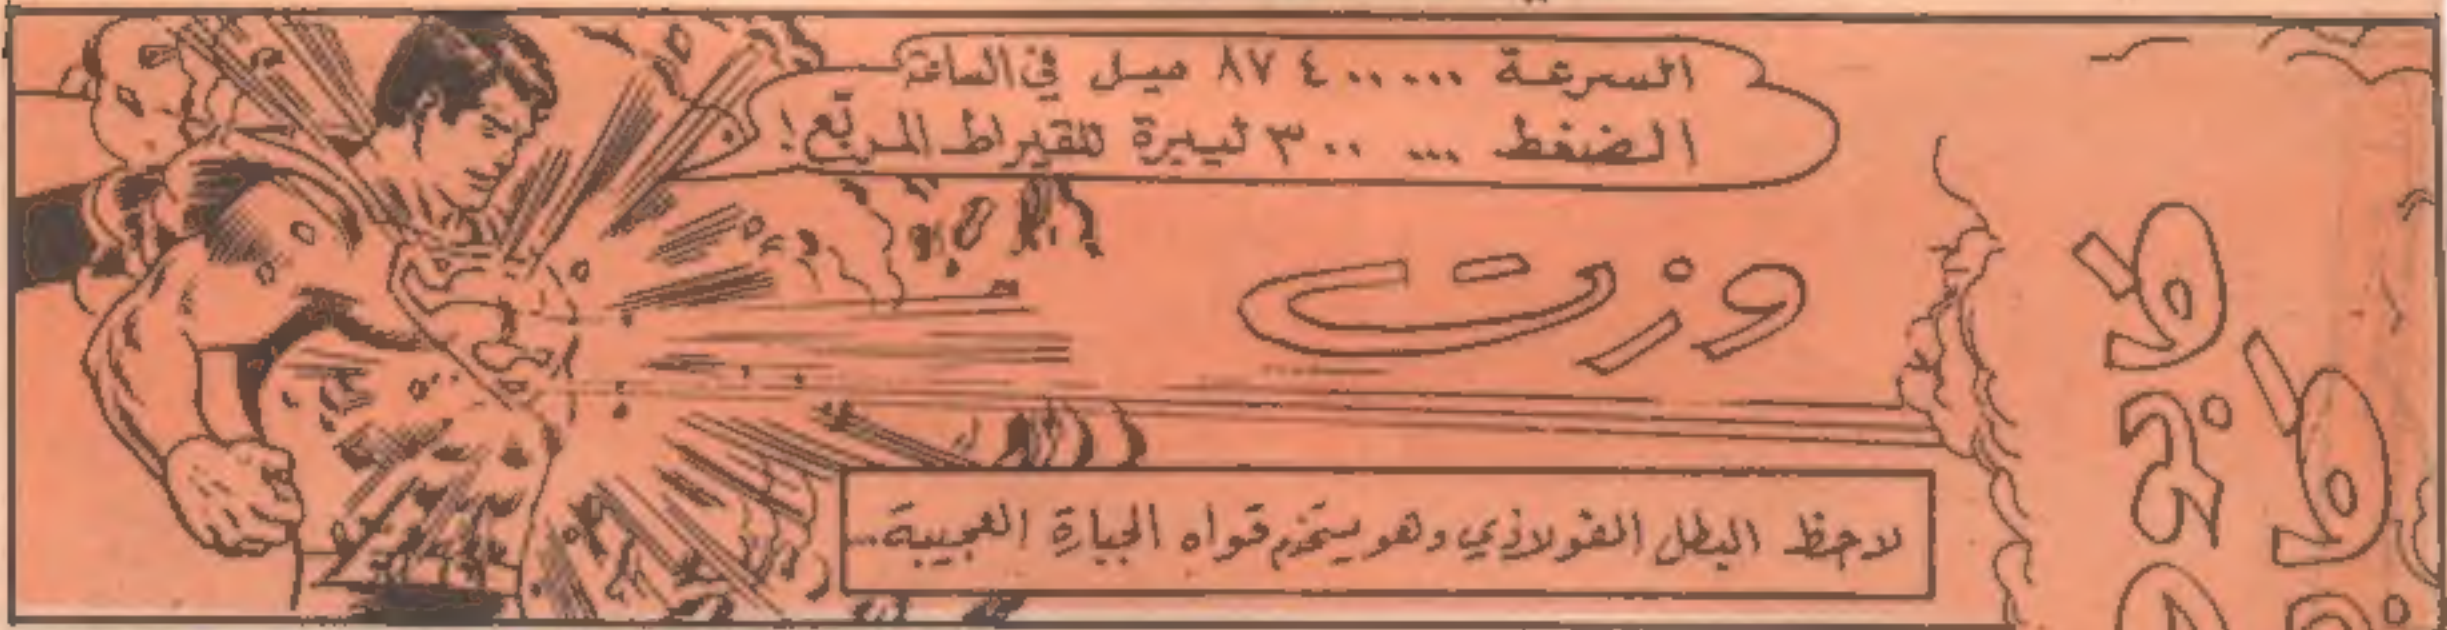 السرعة ...... ٨٧٤٠٠ ميل في الساعة
الضغط ... ٣٠٠ ليبرة للقيراط المربّع!
وزت
لاحظ البطل الفولاذي وهو يستخدم قواه الجبارة العجيبة...